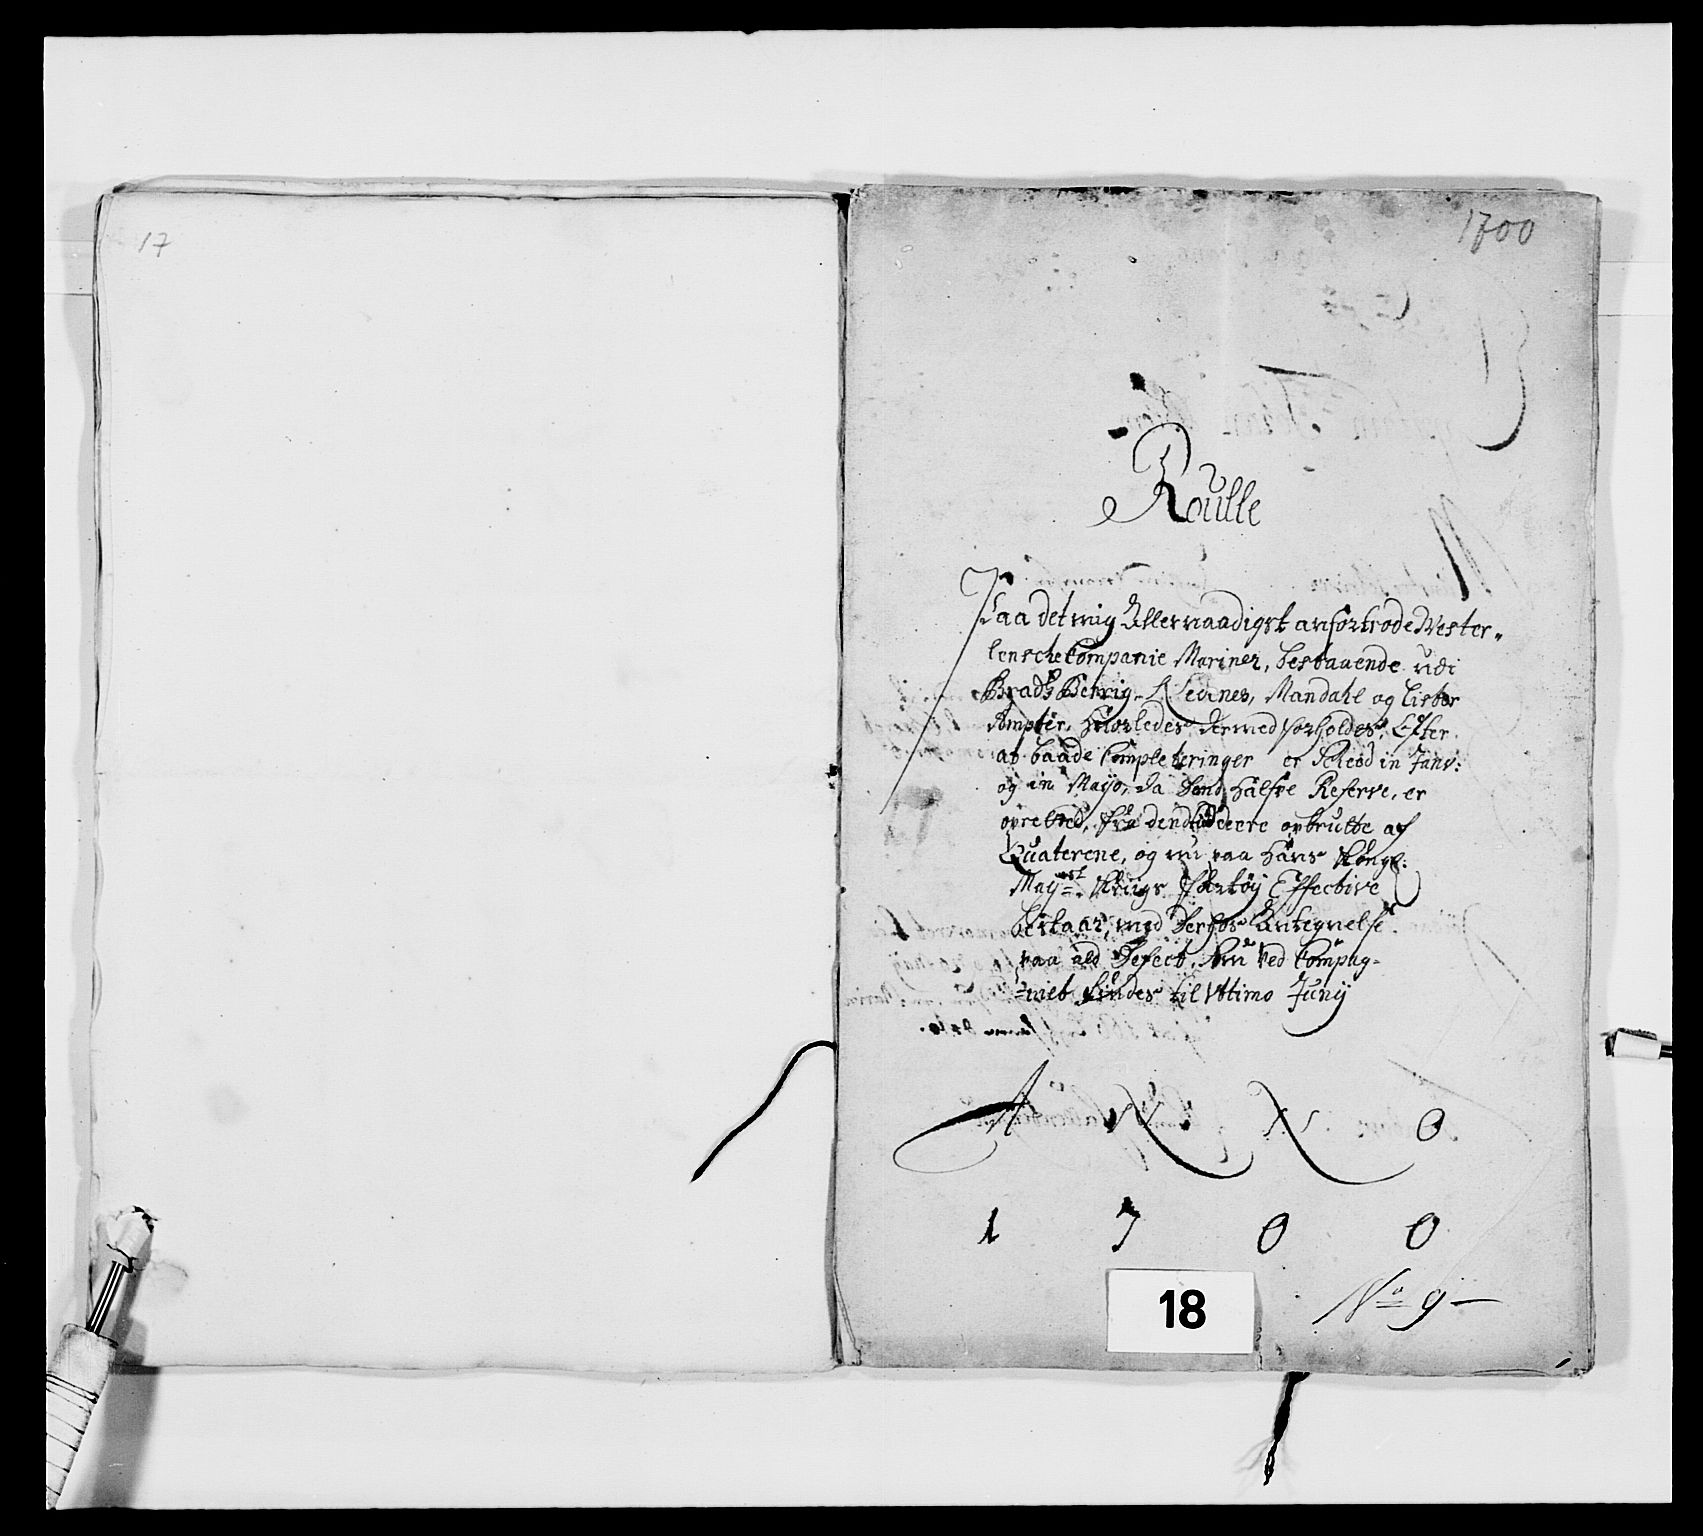 17
1700
Roulle
Paa det mig Allernaadigst anfortrode Wester-
lensche Compagnie Mariner, bestaaende udi
Bradsberrig, Nedenes, Mandahl og Lister
Ampter, hvorledes dermed forholdes, Efter
at baade Completeringer er Scheed in Janv:
og in Mayo, da dend halfve Reserve, er
opretted, fra dend
Quaterene, og nu paa Hans Kongl:
Mayst: Krigs Fartöy Effective
bestaar, med derhos Antegnelse
paa ald Defect, Som ved Compag-
niet findes til Ultimo Junij
A N N O
1 7 0 0
No 9
18